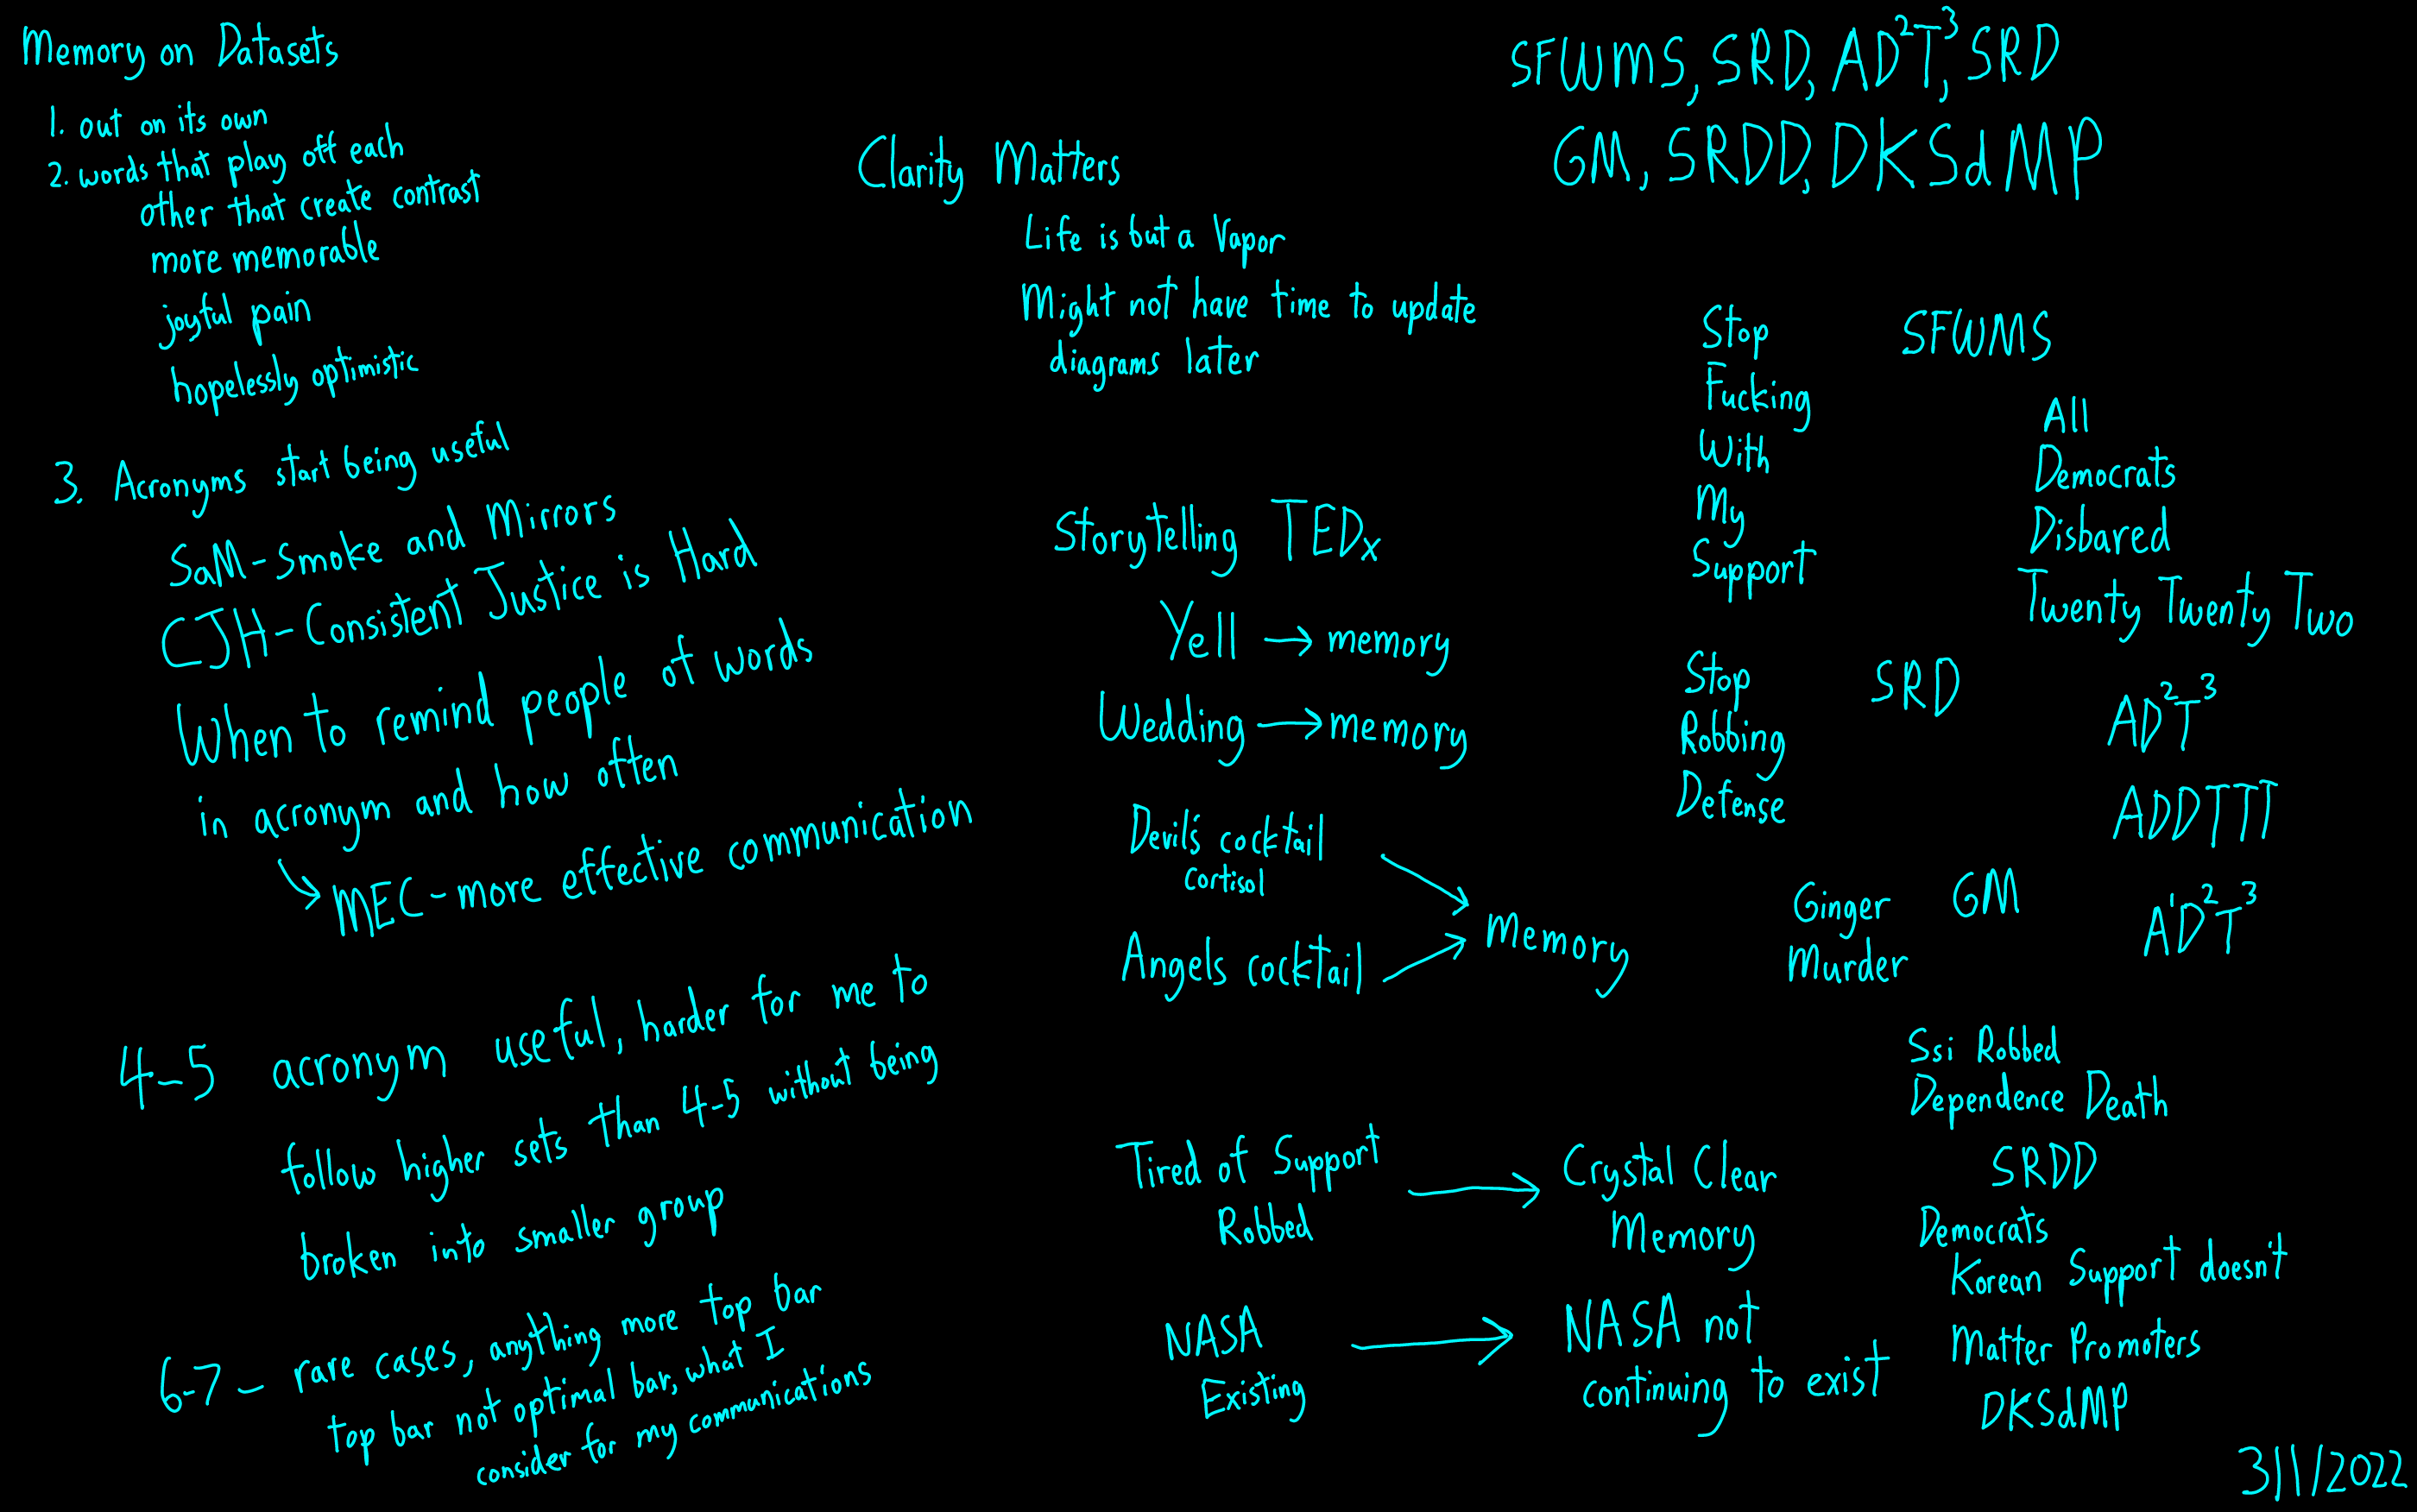 Memory on Datasets
1. out on its own
2. words that play off each
other that create contrast
more memorable
joyful pain
hopelessly optimistic
3. Acronyms start being useful
SaM - Smoke and Mirrors
CJH - Consistent Justice is Hard
When to remind people of words
in acronym and how often
→ MEC - more effective communication
4-5 acronym useful, harder for me to
follow higher sets than 4-5 without being
broken into smaller group
6-7 - rare cases, anything more top bar
top bar not optimal bar, what I
consider for my communications
Clarity Matters
Life is but a Vapor
Might not have time to update
diagrams later
Storytelling TEDx
Yell → memory
Wedding → memory
Devil's cocktail
cortisol
Angels cocktail
Memory
Tired of Support
Robbed
→ Crystal Clear
Memory
NASA
Existing
→ NASA not
continuing to exist
SFWMS, SRD, AD²T³, SRD
GM, SRDD, DKSdMP
Stop
Fucking
With
My
Support
SFWMS
All
Democrats
Disbared
Twenty Twenty Two
AD²T³
ADDTTT
A¹D²T³
Stop
Robbing
Defense
SRD
Ginger
Murder
GM
Ssi Robbed
Dependence Death
SRDD
Democrats
Korean Support doesn't
Matter Promoters
DKSdMP
3/1/2022